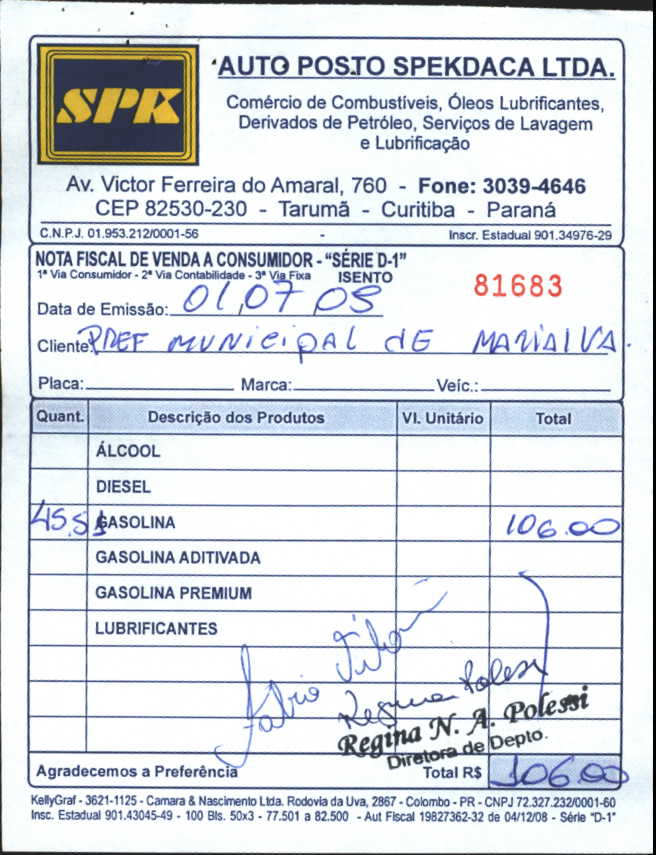 SPK
AUTO POSTO SPEKDACA LTDA.
Comércio de Combustíveis, Óleos Lubrificantes,
Derivados de Petróleo, Serviços de Lavagem
e Lubrificação
Av. Victor Ferreira do Amaral, 760 - Fone: 3039-4646
CEP 82530-230 - Tarumã - Curitiba - Paraná
C.N.P.J. 01.953.212/0001-56 - Inscr. Estadual 901.34976-29
NOTA FISCAL DE VENDA A CONSUMIDOR - “SÉRIE D-1”
1ª Via Consumidor - 2ª Via Contabilidade - 3ª Via Fixa ISENTO
81683
Data de Emissão: 01,07 05
Cliente: PREF MUNICIPAL dE MARIALVA.
Placa: Marca: Veíc.:
Quant. Descrição dos Produtos Vl. Unitário Total
ÁLCOOL
DIESEL
45,51 GASOLINA 106.00
GASOLINA ADITIVADA
GASOLINA PREMIUM
LUBRIFICANTES
Fabio
Regina Polessi
Regina N. A. Polessi
Diretora de Depto.
Agradecemos a Preferência Total R$ 106.00
KellyGraf - 3621-1125 - Camara & Nascimento Ltda. Rodovia da Uva, 2867 - Colombo - PR - CNPJ 72.327.232/0001-60
Insc. Estadual 901.43045-49 - 100 Bls. 50x3 - 77.501 a 82.500 - Aut Fiscal 19827362-32 de 04/12/08 - Série "D-1"